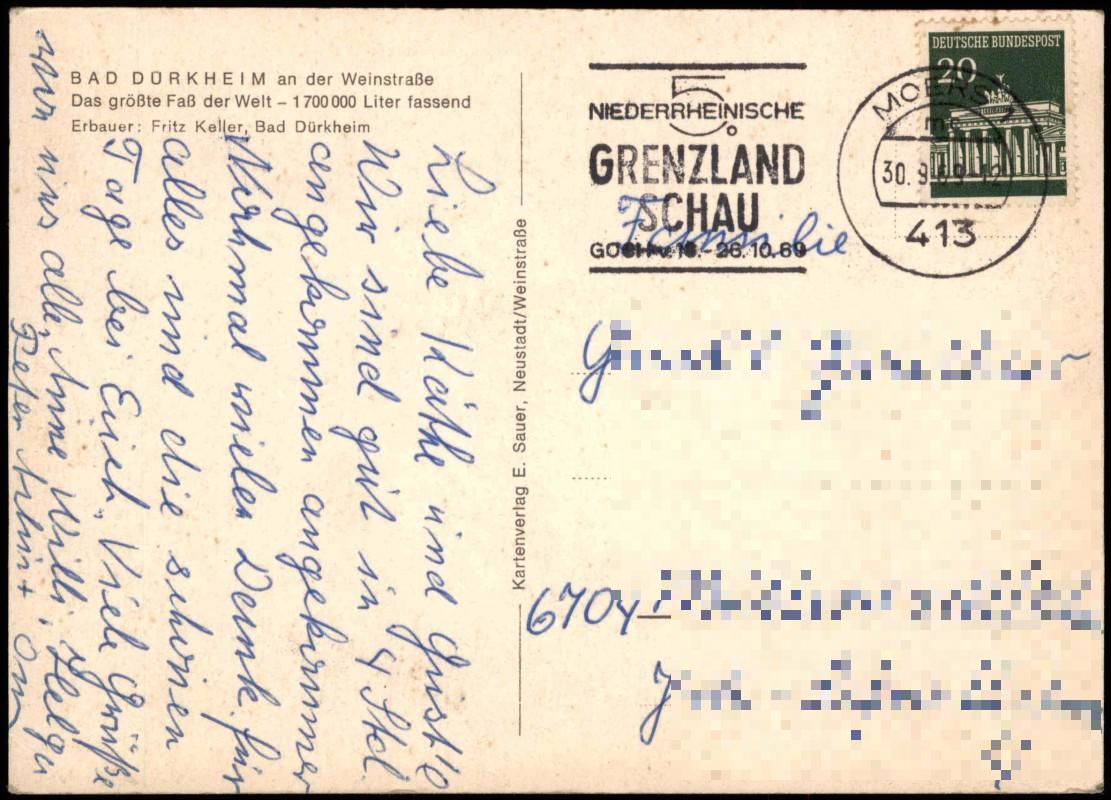 BAD DÜRKHEIM an der Weinstraße
Das größte Faß der Welt – 1 700 000 Liter fassend
Erbauer: Fritz Keller, Bad Dürkheim
Liebe Käthe und Gust'l
Wir sind gut in 4 Std.
angekommen angekommen
Nochmal vielen Dank für
alles und die schönen
Tage bei Euch. Viele Grüße
von uns alle, Anne Willi, Helga
Peter
Kartenverlag E. Sauer, Neustadt/Weinstraße
5.
NIEDERRHEINISCHE
GRENZLAND
SCHAU
GOCH v. 18.-26.10.69
DEUTSCHE BUNDESPOST
20
MOERS 1
30. 9. 69-12
413
Familie
6704